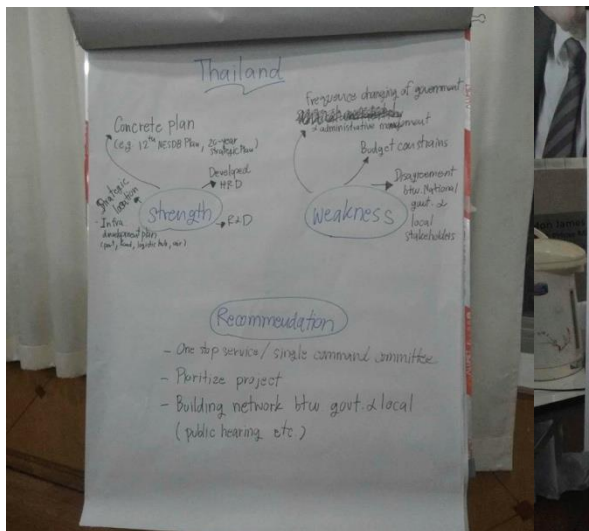 Thailand
Concrete plan
(e.g 12th NESDB Plan, 20-year
Strategic Plan)
Strategic
location
Developed
HRD
Strength
R&D
- Infra
development plan
(port, road, logistic hub, air)
Frequence changing of government
administrative management
Budget constrains
Disagreement
btw. National
govt. &
local
stakeholders
Weakness
Recommendation
- One top service / single command committee
- Pioritize project
- Building network btw govt. & local
(public hearing etc.)